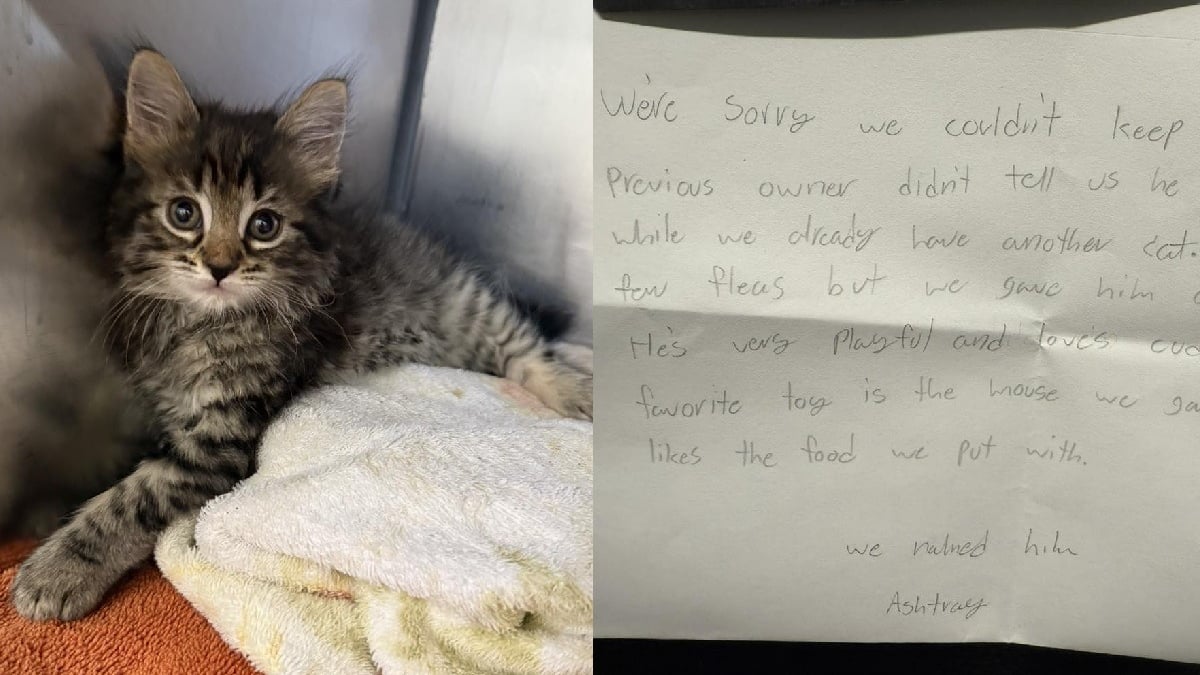 We're Sorry we couldn't keep
Previous owner didn't tell us he
while we already have another cat.
few fleas but we gave him
He's very Playful and loves
favorite toy is the mouse we
likes the food we put with.
we named him
Ashtray